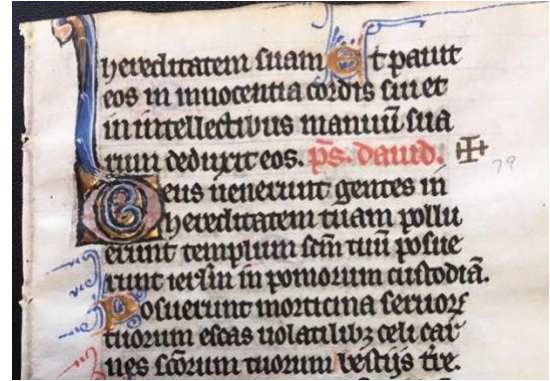 hereditatem suam Et pauit
eos in innocentia cordis sui et
in intellectibus manuū sua
rum deduxit eos. p̄s. dauid.
79
Deus uenerunt gentes in
hereditatem tuam pollu
erunt templum sc̄m tuū posue
runt ierl̄m in pomorum custodiā.
Posuerunt morticina seruorꝝ
tuorum escas uolatilibꝫ celi car
nes sc̄orum tuorum bestijs tr̄e.